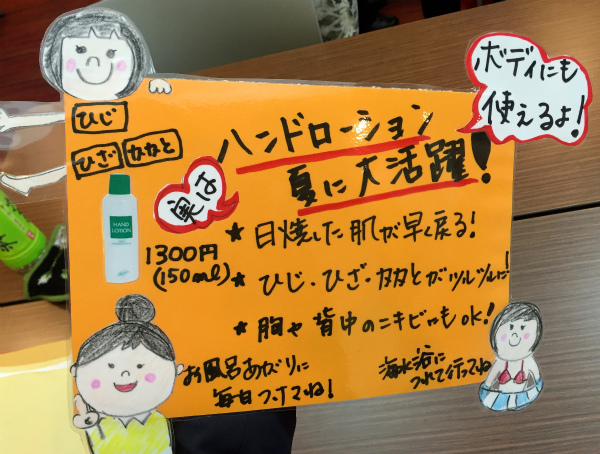 ひじ
ひざ かかと
ハンドローション
夏に大活躍!
ボディにも
使えるよ!
実は
HAND
LOTION
1300円
(150ml)
★日焼した肌が早く戻る!
★ひじ・ひざ・かかとがツルツルに!
★胸や背中のニキビにもOK!
お風呂あがりに
毎日つけてね!
海水浴に
つれて行ってね